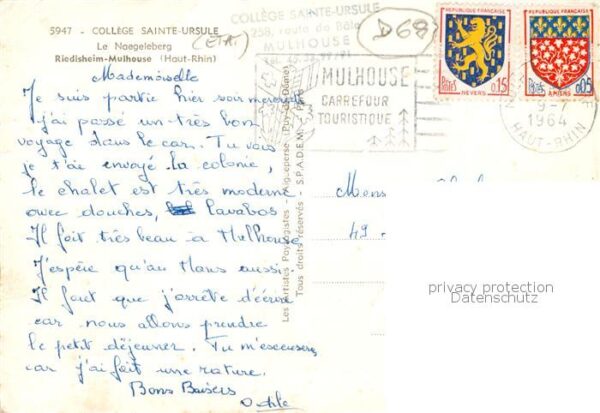 5947 - COLLÈGE SAINTE-URSULE
Le Naegeleberg
Riedisheim-Mulhouse (Haut-Rhin)
(ETA.)
COLLÈGE SAINTE-URSULE
258, route de Bâle
MULHOUSE
D681
MULHOUSE
CARREFOUR
TOURISTIQUE
REPUBLIQUE FRANÇAISE
POSTES 0,15
NEVERS
REPUBLIQUE FRANÇAISE
POSTES 0,05
AMIENS
9-
1964
HAUT-RHIN
Mademoiselle
Je suis partie hier soir mercredi
j'ai passé un très bon
voyage dans le car. Tu vois
je t'ai envoyé la colonie,
le chalet est très moderne.
avec douches, lavabos
Il fait très beau à Mulhouse
J'espère qu'au Mans aussi.
Il faut que j'arrête d'écrire
car nous allons prendre
le petit déjeuner. Tu m'excuseras
car j'ai fait une rature.
Bons Baisers
Odile
Les Artistes Paysagistes - Aigueperse (Puy-de-Dôme)
Tous droits réservés S.P.A.D.E.M.
49
privacy protection
Datenschutz